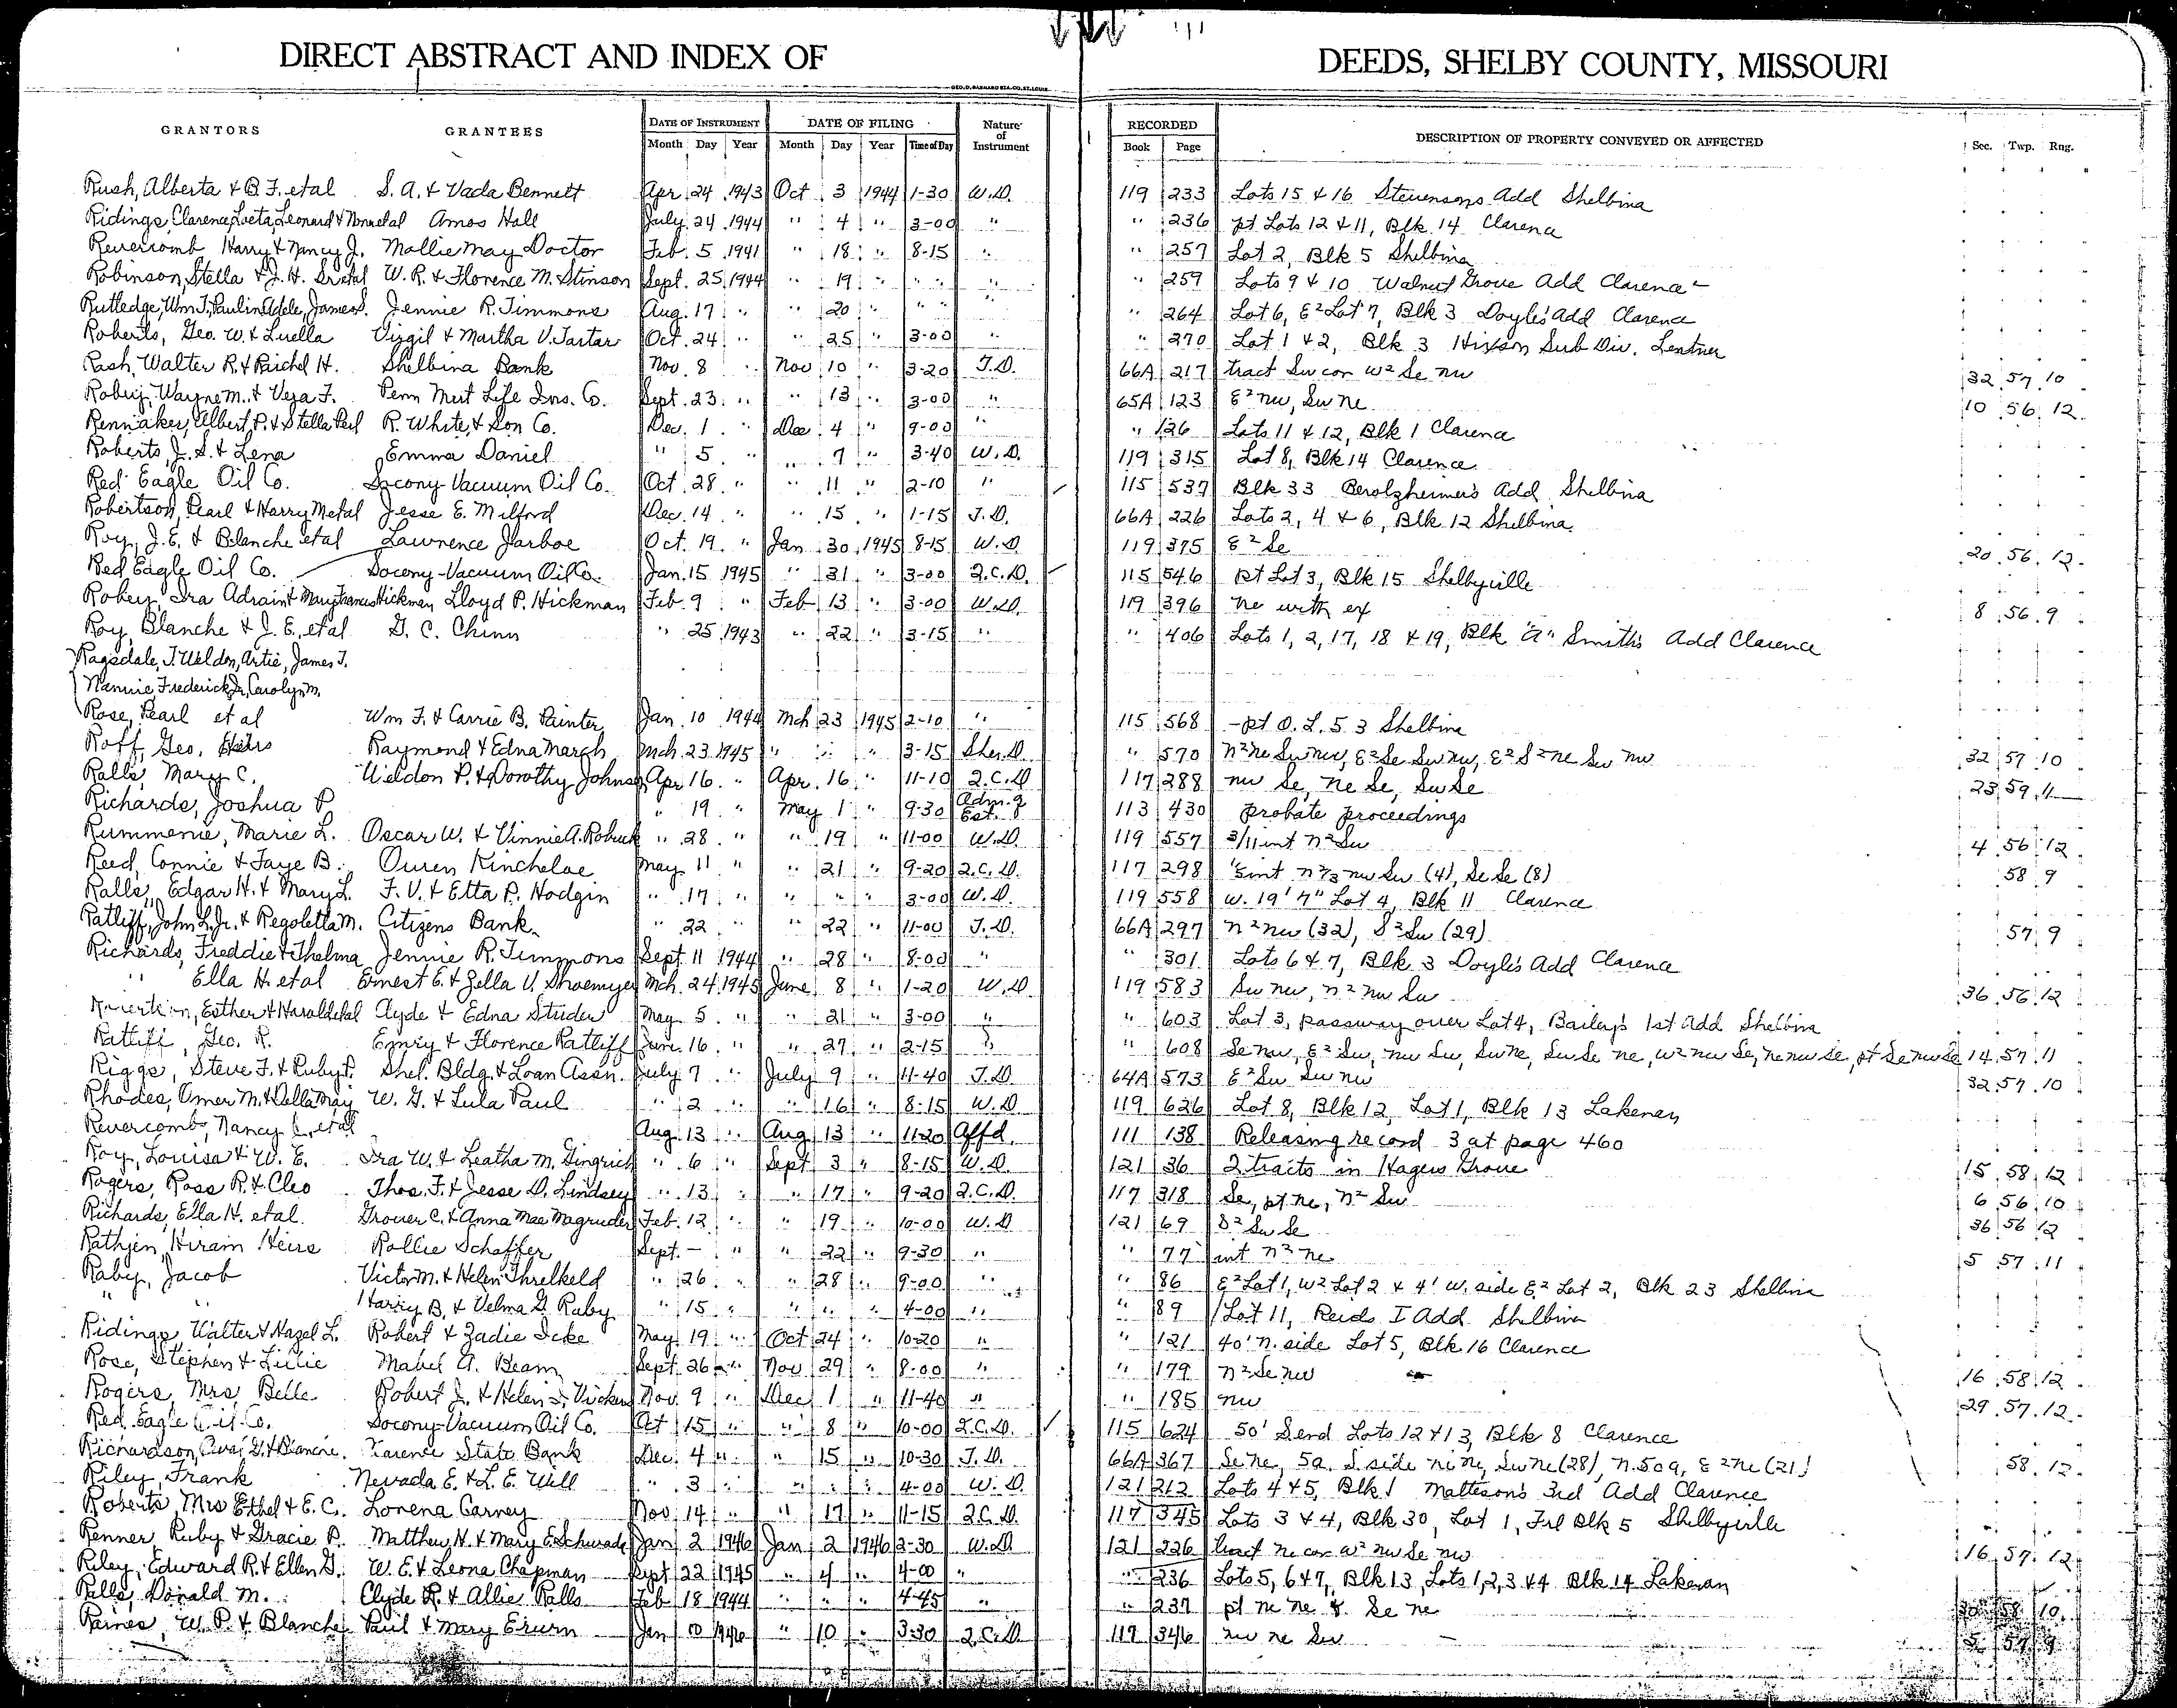 DIRECT ABSTRACT AND INDEX OF DEEDS, SHELBY COUNTY, MISSOURI
GEO. D. BARNARD STA. CO. ST. LOUIS
GRANTORS GRANTEES DATE OF INSTRUMENT DATE OF FILING Nature of Instrument RECORDED DESCRIPTION OF PROPERTY CONVEYED OR AFFECTED Sec. Twp. Rng.
Month Day Year Month Day Year Time of Day Book Page
Rush, Alberta & B. F. etal S. A. & Vada Bennett Apr 24 1943 Oct 3 1944 1-30 W.D. 119 233 Lots 15 & 16 Stevensons Add Shelbina
Ridings, Clarence, Loeta, Leonard & etal Amos Hall July 24 1944 " 4 " 3-00 " " 236 pt Lots 12 & 11, Blk 14 Clarence
Revercomb Harry & Nancy J. Mollie May Doctor Feb. 5 1941 " 18 " 8-15 " " 257 Lot 2, Blk 5 Shelbina
Robinson, Stella & J. H. Sr etal W. R. & Florence M. Stinson Sept. 25 1944 " 19 " " " " 259 Lots 9 & 10 Walnut Grove Add Clarence
Rutledge, Wm J, Paulin Adele, James S. Jennie R. Timmons Aug. 17 " " 20 " " " " 264 Lot 6, E2 Lot 7, Blk 3 Doyle's Add Clarence
Roberts, Geo. W. & Luella Virgil & Martha V. Tartar Oct. 24 " " 25 " 3-00 " " 270 Lot 1 & 2, Blk 3 Hixson Sub Div. Lentner
Rash, Walter R. & Raichel H. Shelbina Bank Nov. 8 " Nov 10 " 3-20 T.D. 66A 217 tract Sw cor W2 Se nw 32 57 10
Robey, Wayne M. & Vera F. Penn Mut Life Ins. Co. Sept. 23 " " 13 " 3-00 " 65A 123 E2 nw, Sw ne 10 56 12
Rennaker, Albert P. & Stella Perl R. White & Son Co. Dec. 1 " Dec. 4 " 9-00 " " 126 Lots 11 & 12, Blk 1 Clarence
Roberts, J. S. & Lena Emma Daniel " 5 " " 7 " 3-40 W.D. 119 315 Lot 8, Blk 14 Clarence
Red Eagle Oil Co. Socony-Vacuum Oil Co. Oct. 28 " " 11 " 2-10 " 115 537 Blk 33 Berolzheimer's Add Shelbina
Robertson, Pearl & Harry M etal Jesse E. Milford Dec. 14 " " 15 " 1-15 T.D. 66A 226 Lots 2, 4 & 6, Blk 12 Shelbina
Roy, J. E. & Blanche etal Lawrence Jarboe Oct. 19 " Jan 30 1945 8-15 W.D. 119 375 E2 Se 20 56 12
Red Eagle Oil Co. Socony-Vacuum Oil Co. Jan. 15 1945 " 31 " 3-00 Q.C.D. 115 546 pt Lot 3, Blk 15 Shelbyville
Robey, Ira Adraint & Mary Frances Hickman Lloyd P. Hickman Feb. 9 " Feb 13 " 3-00 W.D. 119 396 ne with ex 8 56 9
Roy, Blanche & J. E. etal G. C. Chinn " 25 1943 " 22 " 3-15 " " 406 Lots 1, 2, 17, 18 & 19, Blk "A" Smith's Add Clarence
Ragsdale, J. Weldon, Artie, James T.
Nannie, Frederick Jr, Carolyn M.
Rose, Pearl et al Wm F. & Carrie B. Painter Jan. 10 1944 Mch 23 1945 2-10 " 115 568 pt O.L. 53 Shelbina
Roff, Geo. Heirs Raymond & Edna March Mch. 23 1945 " " " 3-15 Sher. D. " 570 n2 ne Sw nw, E2 Se Sw nw, E2 S2 ne Sw nw 32 57 10
Ralls, Mary C. Weldon P. & Dorothy Johnson Apr 16 " Apr. 16 " 11-10 Q.C.D 117 288 nw Se, ne Se, Sw Se 23 59 11
Richards, Joshua P. " 19 " May 1 " 9-30 Adm. of Est. 113 430 probate proceedings
Rummenie, Marie L. Oscar W. & Vinnie A. Robuck " 28 " " 19 " 11-00 W.D. 119 557 3/11 int n2 Sw 4 56 12
Reed, Connie & Faye B. Owen Kincheloe May 11 " " 21 " 9-20 Q.C.D. 117 298 int n 2/3 nw Sw (4), Se Se (8) 58 9
Ralls, Edgar H. & Mary L. F. V. & Etta P. Hodgin " 17 " " " " 3-00 W.D. 119 558 W. 19' 7" Lot 4, Blk 11 Clarence
Ratliff, John L. Jr. & Regoletta M. Citizens Bank " 22 " " 22 " 11-00 T.D. 66A 297 n2 nw (32), S2 Sw (29) 57 9
Richards, Freddie & Thelma Jennie R. Timmons Sept. 11 1944 " 28 " 8-00 " " 301 Lots 6 & 7, Blk 3 Doyle's Add Clarence
" Ella H. etal Ernest E. & Zella V. Shoemyer Mch. 24 1945 June 8 " 1-20 W.D. 119 583 Sw nw, n2 nw Sw 36 56 12
Esther & Harold etal Clyde & Edna Studer May 5 " " 21 " 3-00 " " 603 Lot 3, passway over Lot 4, Bailey's 1st Add Shelbina
Ratliff, Geo. R. Emery & Florence Ratliff June 16 " " 27 " 2-15 " " 608 Se nw, E2 Sw, nw Sw, Sw ne, Sw Se ne, W2 nw Se, ne nw Se, pt Se nw Se 14 57 11
Riggs, Steve F. & Ruby P. Shel. Bldg. & Loan Assn. July 7 " July 9 " 11-40 T.D. 64A 573 E2 Sw Sw nw 32 57 10
Rhodes, Omer M. & Della May W. G. & Lula Paul " 2 " " 16 " 8-15 W.D. 119 626 Lot 8, Blk 12, Lot 1, Blk 13 Lakenan
Revercomb, Nancy J., etal Aug. 13 " Aug 13 " 11-20 Affd. 111 138 Releasing record 3 at page 460
Roy, Louisa & W. E. Ira W. & Leatha M. Gingrich " 6 " Sept 3 " 8-15 W.D. 121 36 2 tracts in Hagers Grove 15 58 12
Rogers, Ross R. & Cleo Thos. F. & Jesse D. Lindsey " 13 " " 17 " 9-20 Q.C.D. 117 318 Se, pt ne, n2 Sw 6 56 10
Richards, Ella H. etal. Grover C. & Anna Mae Magruder Feb. 12 " " 19 " 10-00 W.D 121 69 S2 Sw Se 36 56 12
Rathjen, Hiram Heirs Rollie Schaffer Sept. - " " 22 " 9-30 " " 77 int n2 ne 5 57 11
Raby, Jacob Victor M. & Helen Threlkeld " 26 " " 28 " 9-00 " " 86 E2 Lot 1, W2 Lot 2 & 4' W. side E2 Lot 2, Blk 23 Shelbina
" " Harry B. & Velma G. Raby " 15 " " " " 4-00 " " 89 Lot 11, Reids I Add Shelbina
Ridings, Walter & Hazel L. Robert & Zadie Icke May 19 " Oct 24 " 10-20 " " 121 40' n. side Lot 5, Blk 16 Clarence
Rose, Stephen & Lillie Mabel A. Beam Sept. 26 " Nov 29 " 8-00 " " 179 n2 Se nw 16 58 12
Rogers, Mrs Belle Robert J. & Helen Nov. 9 " Dec 1 " 11-40 " " 185 nw 29 57 12
Red Eagle Oil Co. Socony-Vacuum Oil Co. Oct 15 " " 8 " 10-00 Q.C.D. 115 624 50' S end Lots 12 & 13, Blk 8 Clarence
Richardson, & Blanche Clarence State Bank Dec. 4 " " 15 " 10-30 T.D. 66A 367 Se ne, 5a. S. side ne ne, Sw ne (28), n. 50a, E2 ne (21) 58 12
Riley, Frank Nevada E. & L. E. Will " 3 " " " " 4-00 W.D. 121 212 Lots 4 & 5, Blk 1 Matteson's 3rd Add Clarence
Roberts, Mrs Ethel & E. C. Lorena Carney Nov. 14 " " 17 " 11-15 Q.C.D. 117 345 Lots 3 & 4, Blk 30, Lot 1, Frl Blk 5 Shelbyville
Renner, Ruby & Gracie P. Matthew H. & Mary E. Schwada Jan 2 1946 Jan 2 1946 2-30 W.D. 121 226 tract ne cor W2 nw Se nw 16 57 12
Riley, Edward R. & Ellen G. W. E. & Leona Chapman Sept 22 1945 " 4 " 4-00 " " 236 Lots 5, 6 & 7, Blk 13, Lots 1, 2, 3 & 4 Blk 14 Lakenan
Ralls, Donald M. Clyde R. & Allie Ralls Feb 18 1944 " " " 4-45 " " 237 pt ne ne & Se ne 58 10
Raines, W. P. & Blanche Paul & Mary Erwin Jan 10 1946 " 10 " 3-30 Q.C.D. 117 346 nw ne Sw 5 57 9